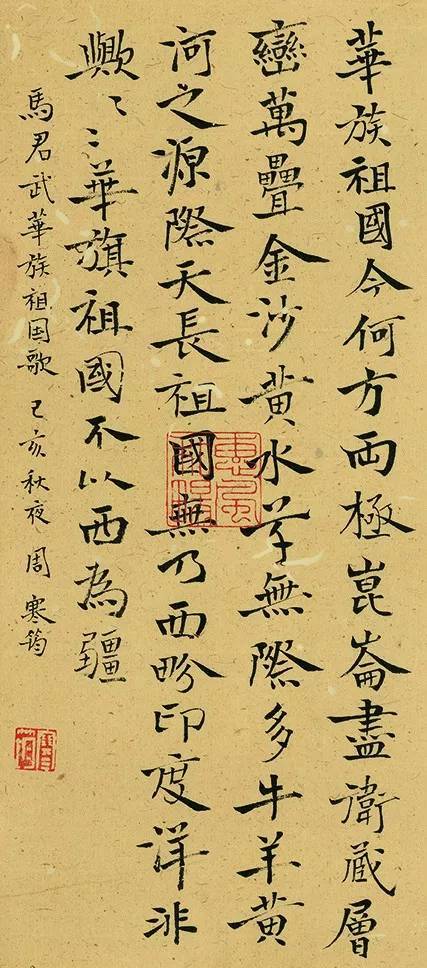 華族祖國今何方両極崑崙盡衛藏層
巒萬疊金沙黄水草無際多牛羊黄
河之源際天長祖國無乃西畛印度洋非
歟〻〻華旗祖國不以西為疆
馬君武華族祖国歌 己亥秋夜 周寒筠